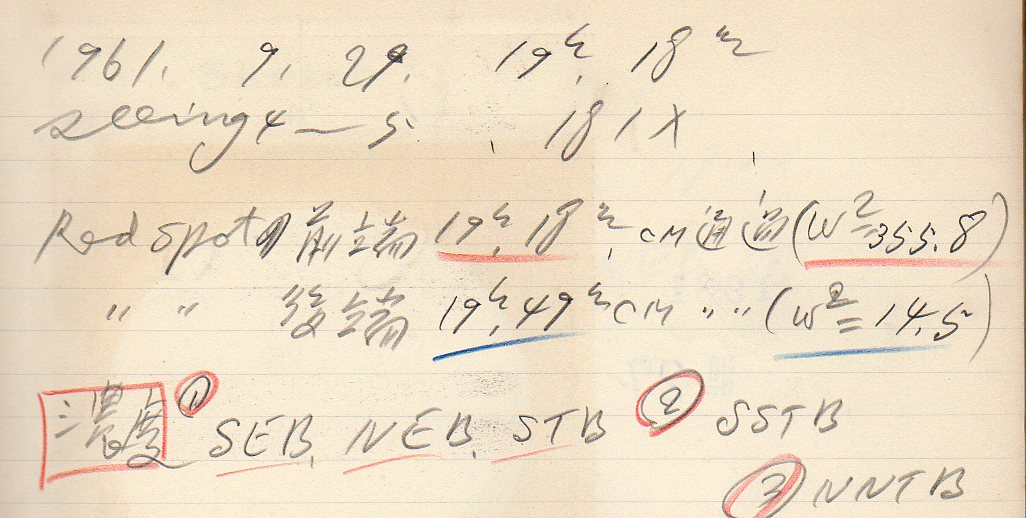 1961. 9. 29. 19h. 18m
seeing 4—5, 181X
Red spotの前端 19h. 18m. CM通過(W2=355.8)
〃 〃 後端 19h. 49m CM 〃〃 (W2=14.5)
濃度 ① SEB, NEB, STB ② SSTB
③ NNTB